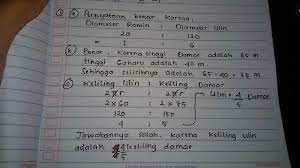 ① ⓐ Pernyataan benar karena,
Diameter Ramin : Diameter Ulin
20 : 120
1 : 6
ⓑ Benar, Karena tinggi Damar adalah 65 m
tinggi Gaharu adalah 40 m.
Sehingga selisihnya adalah 65-40 = 25 m
ⓒ Keliling Ulin : Keliling Damar
2πr : 2πr
2 x 60 : 2 x 75
120 : 150
4 : 5
Ulin = 4/5 Damar
Jawabannya salah. karena keliling ulin
adalah 4/5 keliling damar